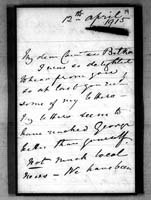 12th April
1915
My dear Countess Bethan
I was so delighted
to hear from you &
so at last you
some of my letters
My letters seem to
have reached George
better than yourself.
Not much local
News – We have been